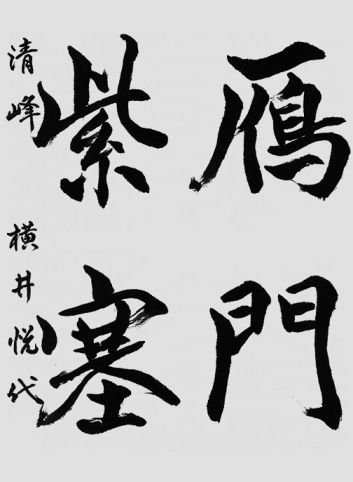 鴈門
紫塞
清峰 横井悦代